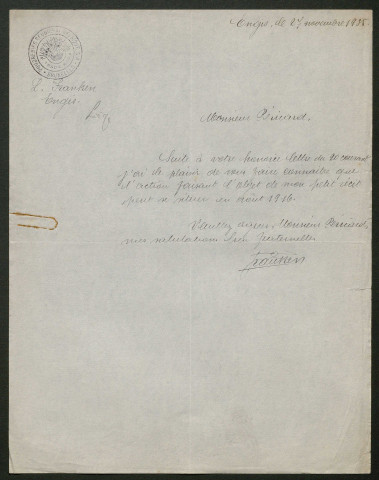 Engis, le 27 novembre 1938
L. Franken
Engis.
Monsieur Péricard.
Suite à votre honorée lettre du 10 courant
j'ai le plaisir de vous faire connaître que
l'action faisant l'objet de mon petit récit
peut se situer en août 1916
Veuillez agréer, Monsieur Péricard,
mes salutations bien fraternelles
Franken